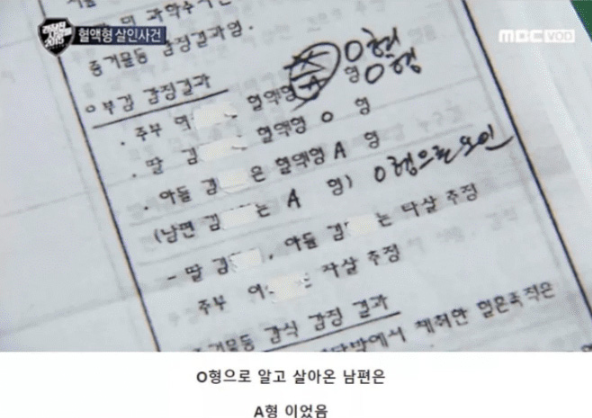 혈액형 살인사건
MBC VOD
증거물등 감정결과
O형
ㅇ부검 감정결과
· 주부 이 혈액형 A 형 O형
· 딸 김 혈액형 O 형
· 아들 김 은 혈액형 A 형
(남편 김 는 A 형) O형으로 오인
- 딸 김 , 아들 김 는 타살 추정
주부 이 는 자살 추정
증거물등 감식 감정 결과
에서 채취한 혈흔흔적은
O형으로 알고 살아온 남편은
A형 이었음